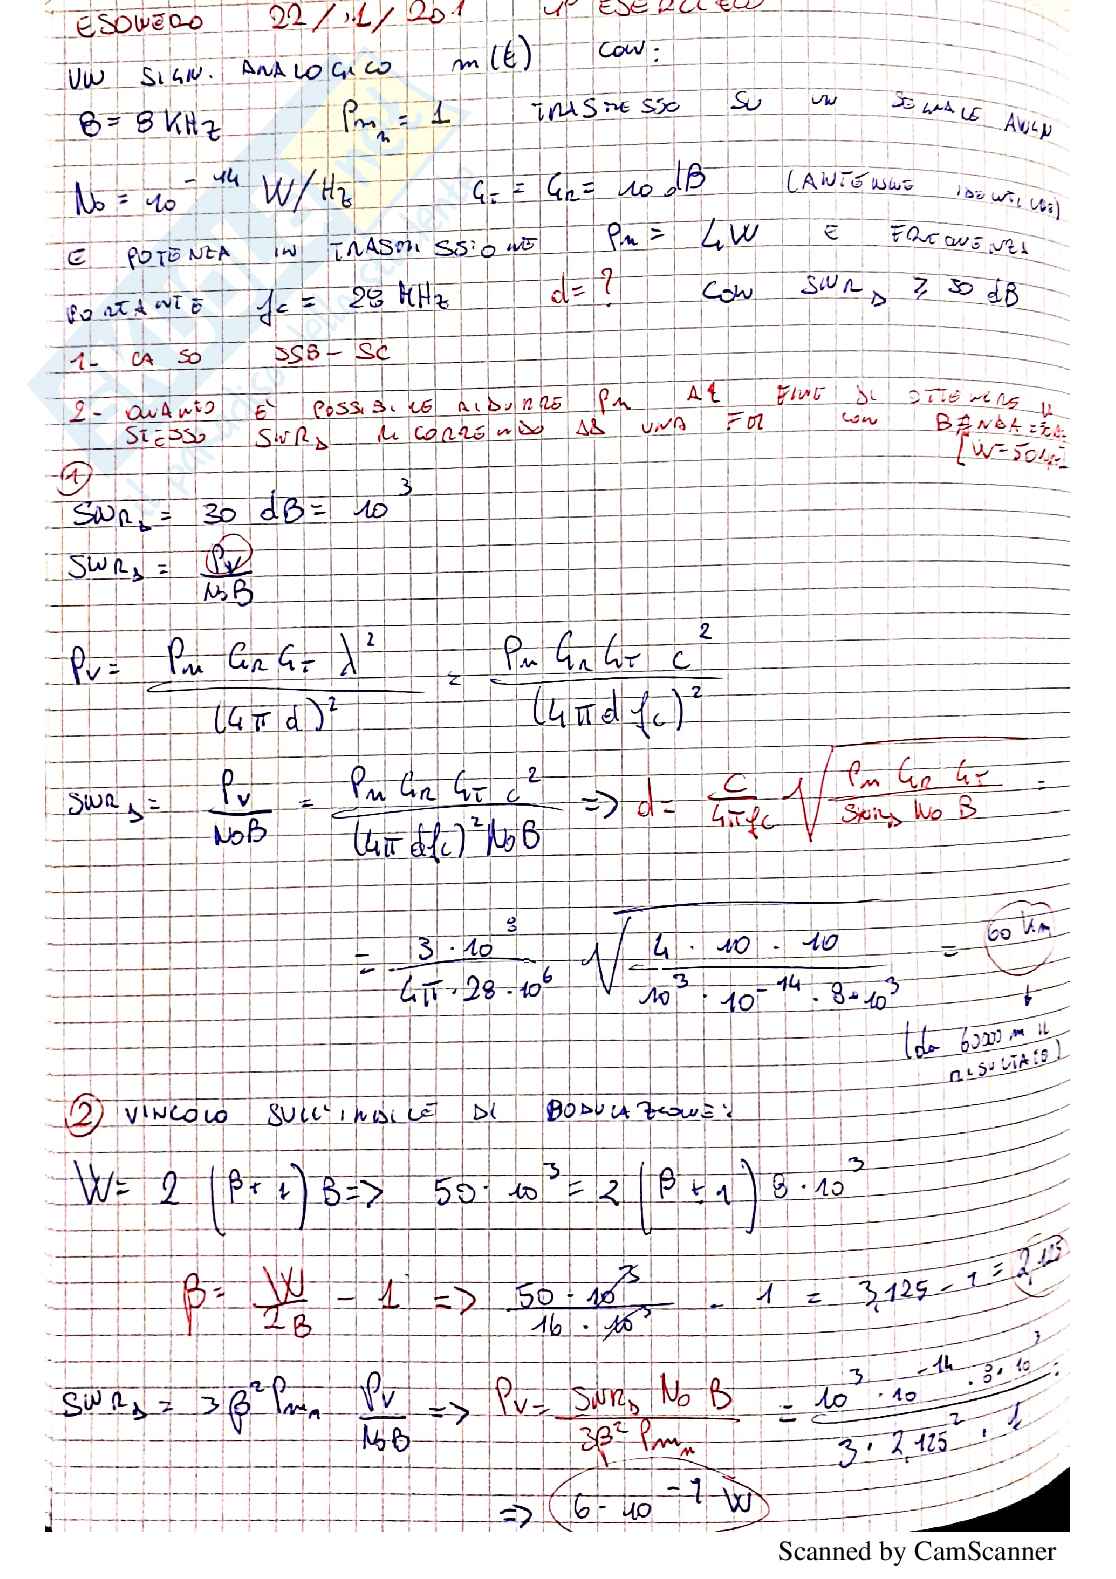 ESONERO 22/11/201
UN SIGN. ANALOGICO m(t) CON:
B = 8 KHz Pm_n = 1 TRASMESSO SU UN SEGNALE AWGN
N0 = 10^-14 W/Hz GT = GR = 10 dB (ANTENNE IDENTICHE)
E POTENZA IN TRASMISSIONE Pm = 4W E FREQUENZA
PORTANTE fc = 28 MHz d = ? CON SNR_D ≥ 30 dB
1- CASO DSB-SC
2- QUANTO È POSSIBILE RIDURRE Pm AL FINE DI OTTENERE IL
STESSO SNR_D RICORRENDO AD UNA FM CON BANDA
[W=50
① SNR_D = 30 dB = 10^3
SNR_D = Pv / N0B
Pv = Pm GR GT λ^2 / (4πd)^2 = Pm GR GT c^2 / (4πd fc)^2
SNR_D = Pv / N0B = Pm GR GT c^2 / (4πdfc)^2 N0B => d = c / 4πfc √(Pm GR GT / SNR_D N0 B) =
= 3·10^8 / 4π·28·10^6 √(4·10·10 / 10^3·10^-14·8·10^3) = 60 Km
↓
(da 60000 m il
RISULTATO)
② VINCOLO SULL'INDICE DI MODULAZIONE:
W = 2 (β+1) B => 50·10^3 = 2 (β+1) 8·10^3
β = W / 2B - 1 => 50·10^3 / 16·10^3 - 1 = 3,125 - 1 = 2,125
SNR_D = 3β^2 Pm_n Pv / N0B => Pv = SNR_D N0 B / 3β^2 Pm_n = 10^3·10^-14·8·10^3 / 3·2,125^2·1 =
=> 6·10^-9 W
Scanned by CamScanner